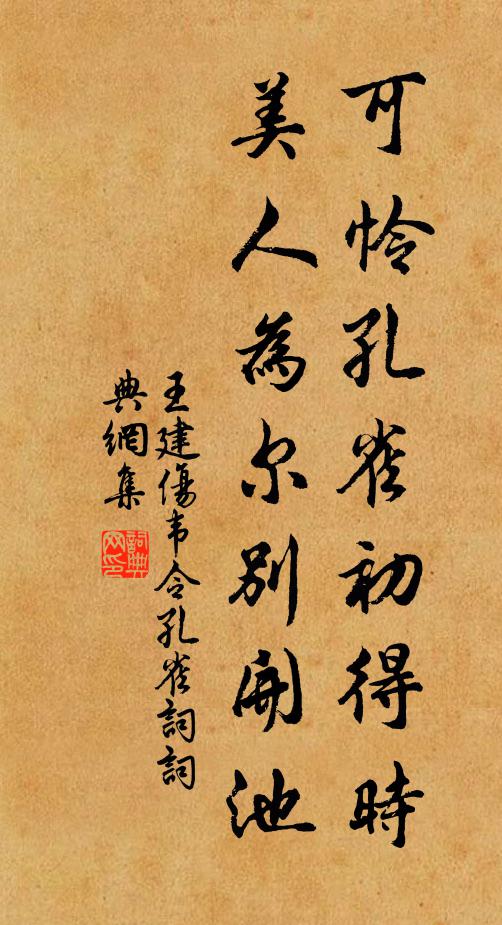 可怜孔雀初得時
美人為尔別開池
王建傷韦令孔雀詞詞
典網集
詞典
网印